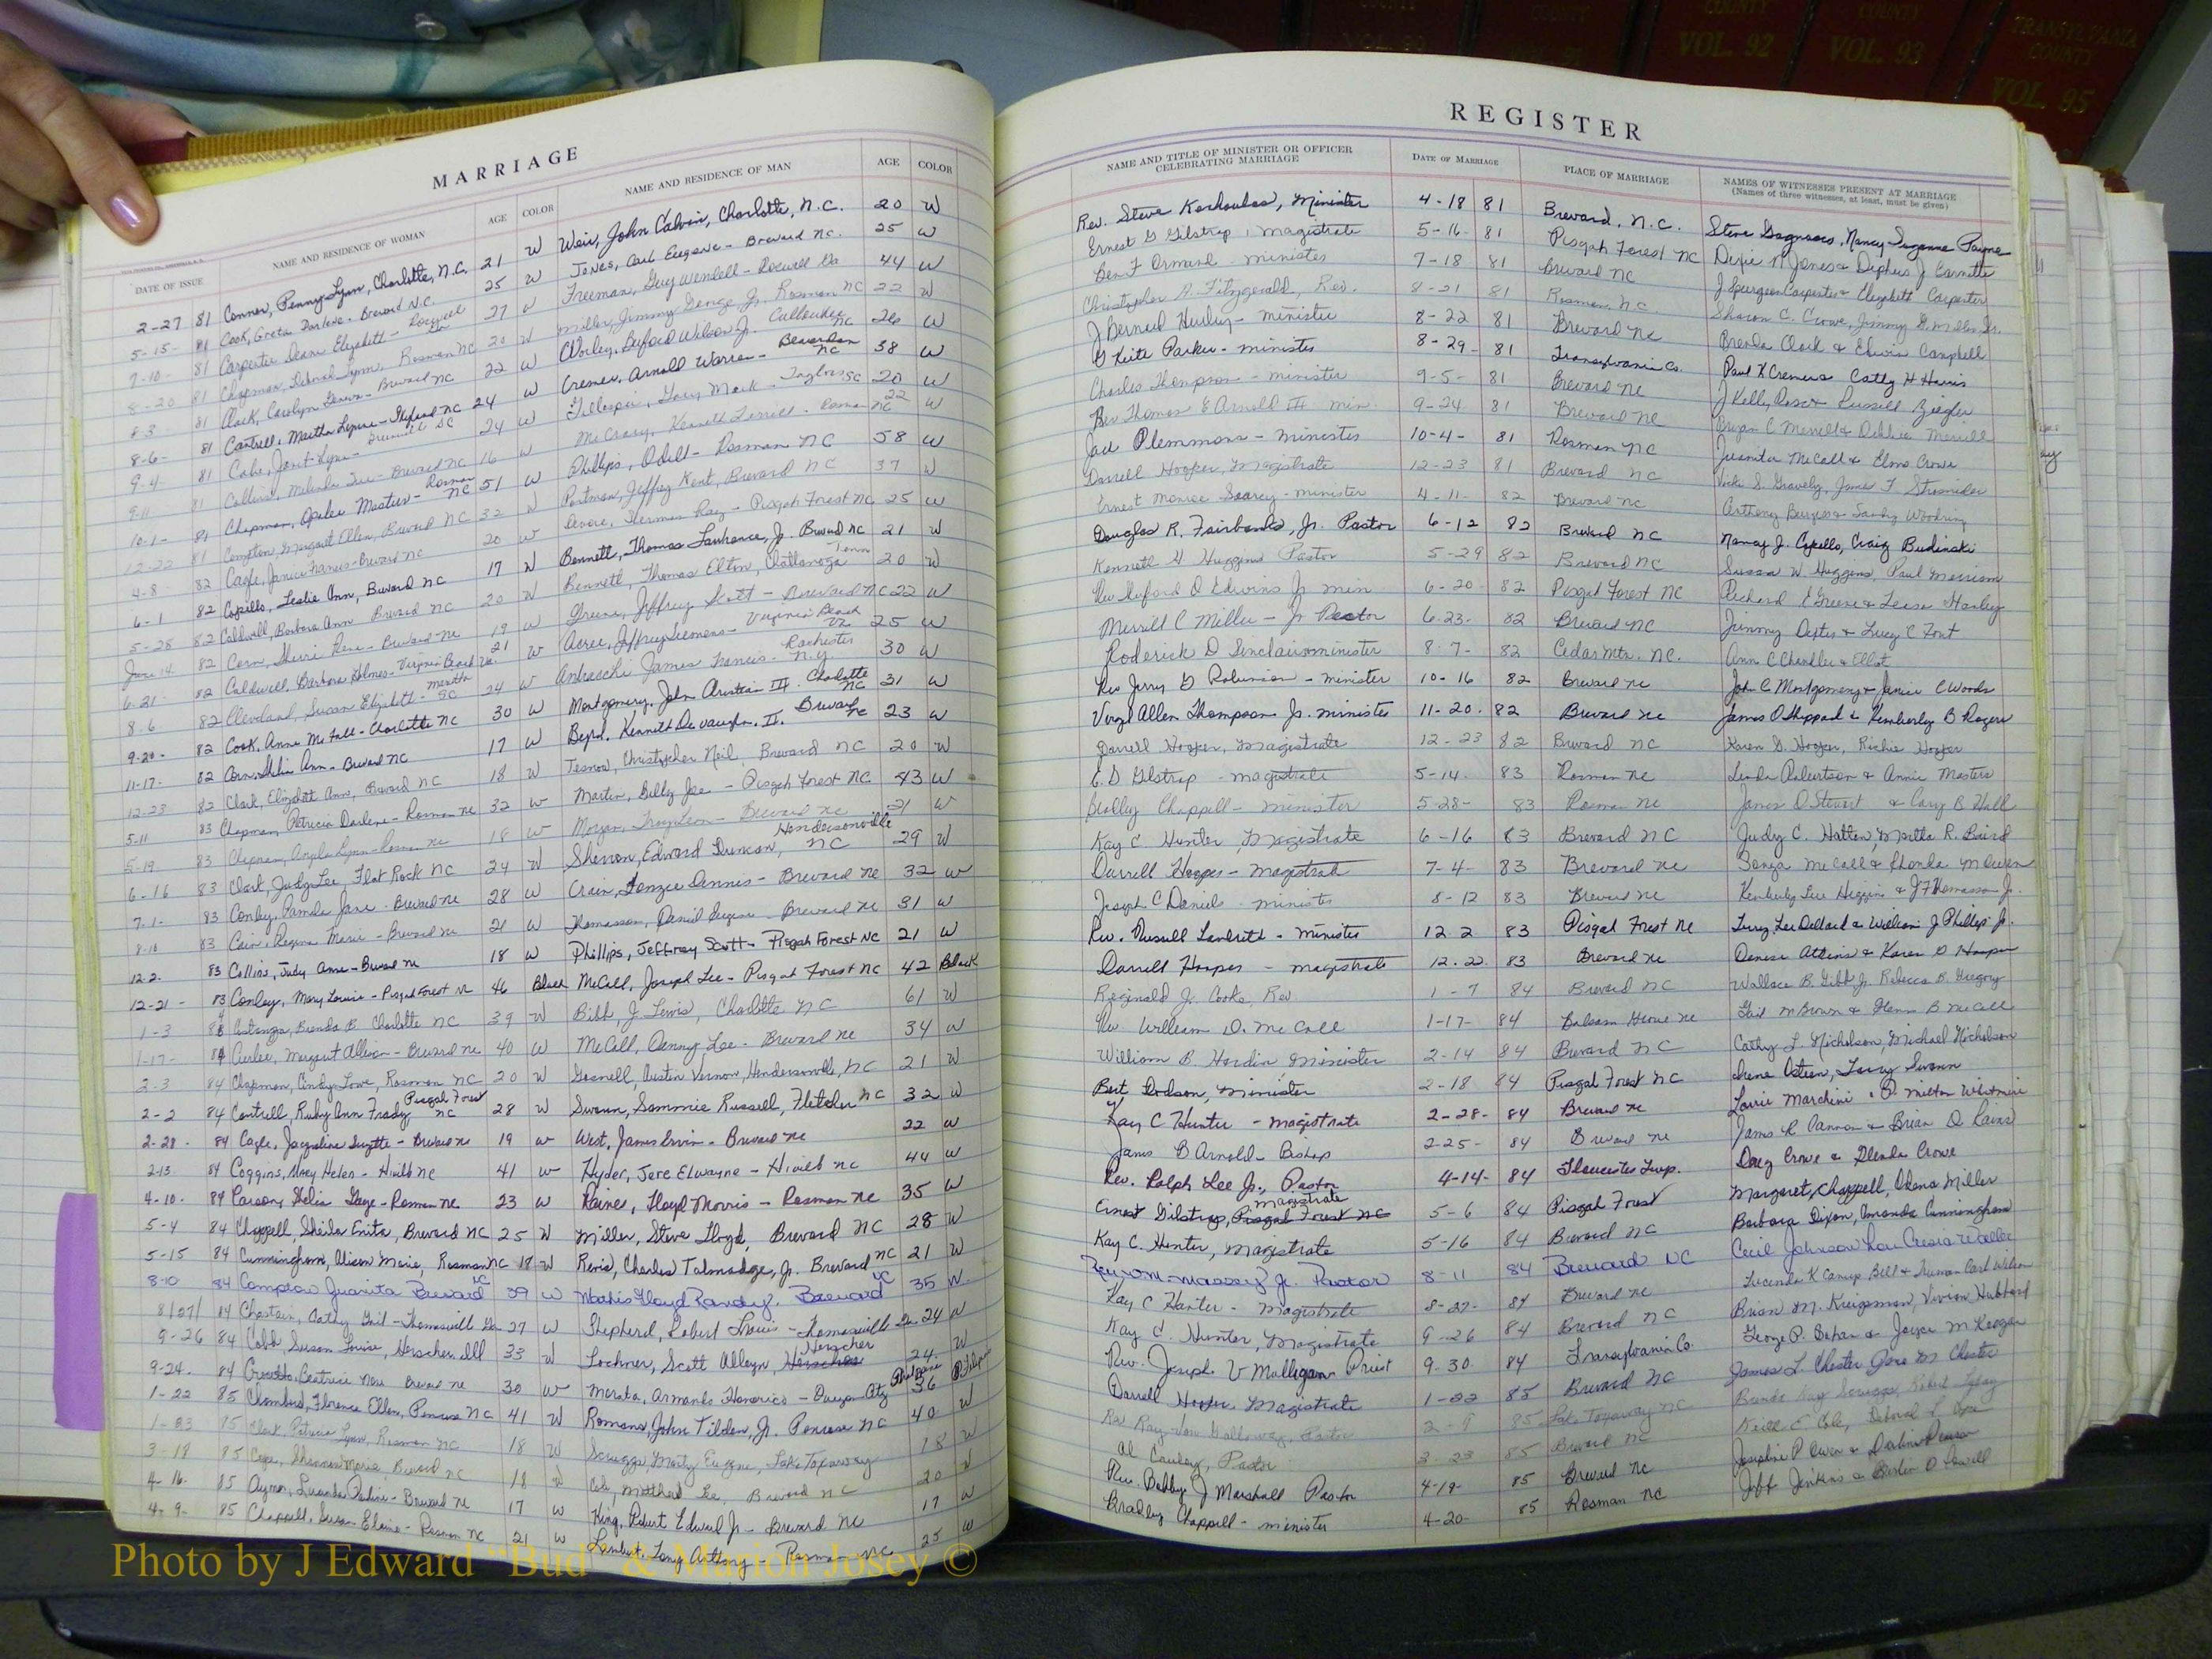 COUNTY
VOL. 92
COUNTY
VOL. 93
TRANSYLVANIA
COUNTY
VOL. 95
MARRIAGE
DATE OF ISSUE NAME AND RESIDENCE OF WOMAN AGE COLOR NAME AND RESIDENCE OF MAN AGE COLOR
2-27 81 Conner, Penny Lynn, Charlotte, N.C. 21 W Weir, John Calvin, Charlotte, N.C. 20 W
5-15- 81 Cook, Greta Darlene - Brevard N.C. 25 W Jones, Carl Eugene - Brevard NC. 25 W
7-10- 81 Carpenter Diane Elizabeth - 27 W Freeman, Guy Wendell - Ga 44 W
8-20 81 Chapman, Deborah Lynn, Rosman NC 20 W Miller, Jimmy George Jr. Rosman NC 22 W
8-3 81 Clark, Carolyn - Brevard NC 22 W Worley, Buford Wilson Jr. Cullowhee NC 26 W
8-6- 81 Cantrell, Martha Lynne - NC 24 W Cremer, Arnold Warren - NC 38 W
9-4 81 Cabe, Janet Lynn - SC 24 W Gillespie, Mark - SC 20 W
9-11 81 Collins, Melinda Sue - Brevard NC 16 W McCrary, Kenneth - Rosman NC 22 W
10-1- 81 Chapman, Opalee Masters - Rosman NC 51 W Phillips, Odell - Rosman NC 58 W
12-22 81 Compton, Margaret Ellen, Brevard NC 32 W Portman, Jeffrey Kent, Brevard NC 37 W
4-8 82 Cagle, Janice - Brevard NC 20 W Herman Ray - Pisgah Forest NC 25 W
6-1 82 Copello, Leslie Ann, Brevard NC 17 W Bennett, Thomas Lawrence, Jr. Brevard NC 21 W
5-28 82 Caldwell, Barbara Ann Brevard NC 20 W Bennett, Thomas Elton, Chattanooga Tenn 20 W
June 14 82 Corn, Sherri Rene - Brevard NC 19 W Greene, Jeffrey Scott - Brevard NC 22 W
6-21- 82 Caldwell, Barbara Holmes - Virginia Beach Va. 21 W Acree, Jeffrey - Virginia Beach Va 25 W
8-6 82 Cleveland, Susan Elizabeth - SC 24 W Andraschi James Francis - Rochester N.Y. 30 W
9-20- 82 Cook, Anne McFall - Charlotte NC 30 W Montgomery, John Christian III - Charlotte NC 31 W
11-17- 82 Corn, Ann - Brevard NC 17 W Byrd, Kenneth DeVaughn, II, Brevard NC 23 W
12-23 82 Clark, Elizabeth Ann, Brevard NC 18 W Tesnow, Christopher Neil, Brevard NC 20 W
5-11 83 Chapman, Patricia Darlene - Rosman NC 32 W Martin, Billy Joe - Pisgah Forest NC 43 W
5-19 83 Chapman, Angela Lynn - Rosman NC 18 W Morgan, Troy Leon - Brevard NC 21 W
6-16 83 Clark, Judy Lee, Flat Rock NC 24 W Sherron, Edward Duncan, Hendersonville NC 29 W
7-1- 83 Conley, Pamela Jane - Brevard NC 28 W Crain, Dennis - Brevard NC 32 W
8-10 83 Cain, Regina Marie - Brevard NC 21 W Thomasson, Daniel Eugene - Brevard NC 31 W
12-2- 83 Collins, Judy Anne - Brevard NC 18 W Phillips, Jeffrey Scott - Pisgah Forest NC 21 W
12-21- 83 Conley, Mary Louise - Pisgah Forest NC 46 Black McCall, Joseph Lee - Pisgah Forest NC 42 Black
1-3 84 Brenda B. Charlotte NC 39 W Bibb, J. Lewis, Charlotte NC 61 W
1-17- 84 Margaret Allison - Brevard NC 40 W McCall, Danny Lee - Brevard NC 34 W
2-3 84 Chapman, Cindy Lowe, Rosman NC 20 W Gosnell, Austin Vernon, Hendersonville, NC 21 W
2-2 84 Cantrell, Ruby Ann Frady, Pisgah Forest NC 28 W Swann, Sammie Russell, Fletcher NC 32 W
2-28- 84 Cagle, Jacqueline Suzette - Brevard NC 19 W West, James Ervin - Brevard NC 22 W
2-13 84 Coggins, Mary Helen - NC 41 W Hyder, Jere Elwayne - NC 44 W
4-10- 84 Carson, Gaye - Rosman NC 23 W Raines, Floyd Morris - Rosman NC 35 W
5-4 84 Chappell, Sheila Enita, Brevard NC 25 W Miller, Steve Lloyd, Brevard NC 28 W
5-15 84 Cunningham, Alison Marie, Rosman NC 18 W Revis, Charles Talmadge, Jr. Brevard NC 21 W
8-10 84 Compton Juanita Brevard NC 39 W Mathis Floyd Randy, Brevard NC 35 W
8/27/ 84 Chastain, Cathy Gail - Thomasville Ga 27 W Shepherd, Robert Travis - Thomasville Ga 24 W
9-26 84 Cobb Susan Louise, Herscher, Ill 33 W Lochner, Scott Alleyn, Herscher 24 W
9-24- 84 Beatrice Brevard NC 30 W Armando - Quezon City Philippine 36
1-22 85 Florence Ellen, Penrose NC 41 W Romano, John Tilden, Jr. Penrose NC 40 W
85 Clark, Patricia Lynn, Rosman NC 18 W Scruggs, Marty Eugene, Lake Toxaway 18 W
3-18 85 Cope, Shannon Marie, Brevard NC 18 W Cole, Matthew Lee, Brevard NC 20 W
4-16- 85 Pauline - Brevard NC 17 W King, Robert Edward Jr - Brevard NC 17 W
4-9- 85 Chappell, Susan Elaine - Rosman NC 21 W Lambert, Tony Anthony Rosman NC 25 W
REGISTER
NAME AND TITLE OF MINISTER OR OFFICER CELEBRATING MARRIAGE DATE OF MARRIAGE PLACE OF MARRIAGE NAMES OF WITNESSES PRESENT AT MARRIAGE
(Names of three witnesses, at least, must be given)
Rev. Steve Minister 4-18 81 Brevard, N.C. Steve Nancy Suzanne Payne
Ernest G Gilstrap, Magistrate 5-16- 81 Pisgah Forest NC Dixie N Jones & J
Ben F Ormand - Minister 7-18 81 Brevard NC J Spurgeon Carpenter & Elizabeth Carpenter
Christopher A. Fitzgerald, Rev. 8-21 81 Rosman N.C. Sharon C. Crowe, Jimmy G. Miller Sr.
J Bernard Hurley - Minister 8-22 81 Brevard NC Brenda Clark & Edwin Campbell
G Keith Parker - Minister 8-29- 81 Transylvania Co. Paul K Cremer & Cathy H Harris
Charles Thompson - Minister 9-5- 81 Brevard NC J Kelly & Russell Ziegler
Rev Thomas E Arnold III min 9-24 81 Brevard NC Bryan C Merrill & Debbie Merrill
Jack Plemmons - Minister 10-4- 81 Rosman NC Juanita McCall & Elmo Crowe
Darrell Hooper, Magistrate 12-23 81 Brevard NC Vicki S Gravely, Jane F.
Ernest Monroe Searcy - Minister 4-11- 82 Brevard NC Anthony Burgess & Sandy Woodring
Douglas R. Fairbanks, Jr. Pastor 6-12 82 Brevard NC Nancy J. Copello, Craig Budinski
Kenneth G Huggins Pastor 5-29 82 Brevard NC Susan W. Huggins, Paul Morrison
Rev Buford O Edwins Jr min 6-20 82 Pisgah Forest NC Richard E Greene &
Merrill C Miller - Jr Pastor 6-23- 82 Brevard NC Jimmy & Lucy C Font
Roderick D Sinclair minister 8-7- 82 Cedar Mtn. NC. Ann C Chandler & Elliot
Rev Jerry G Robinson - Minister 10-16 82 Brevard NC John C Montgomery & Janice C Woods
Virgil Allen Thompson Jr. minister 11-20- 82 Brevard NC James O Sheppard & Kimberley B Rogers
Darrell Hooper, Magistrate 12-23 82 Brevard NC Karen G. Hooper, Richie Hooper
E.G Gilstrap - Magistrate 5-14- 83 Rosman NC Linda Robertson & Annie Masters
Bradley Chappell - Minister 5-28- 83 Rosman NC James D Stewart & Gary B Hall
Kay C Hunter, Magistrate 6-16 83 Brevard NC Judy C. Hatten, Martha R. Baird
Darrell Hooper - Magistrate 7-4- 83 Brevard NC Tonya McCall & Rhonda M Owen
Joseph C Daniels - Minister 8-12 83 Brevard NC Kimberly Lee Higgins & J F Thomasson Jr.
Rev. Russell - Minister 12 2 83 Pisgah Forest NC Terry Lee Dillard & William J Phillips Jr.
Darrell Hooper - Magistrate 12-22 83 Brevard NC Denise Atkins & Karen G Hooper
Reginald J. Cooke, Rev 1-7 84 Brevard NC Wallace B. Gibbs Jr. Rebecca B. Gregory
Rev William D. McCall 1-17- 84 Balsam Grove NC Gail M Brown & Glenn B McCall
William B Hardin, Minister 2-14 84 Brevard NC Cathy L. Nicholson, Michael Nicholson
Bert Dodson, Minister 2-18 84 Pisgah Forest NC Irene Osteen, Larry Swann
Kay C Hunter - Magistrate 2-28- 84 Brevard NC Lorrie Marchini & D. Milton Whitmire
James B Arnold - Bishop 2-25- 84 Brevard NC James R Cannon & Brian D Rains
Rev. Ralph Lee Jr., Pastor 4-14- 84 Gloucester Twp. Doug Crowe & Glenda Crowe
Ernest Gilstrap, Pisgah Forest NC Magistrate 5-6 84 Pisgah Forest Margaret Chappell, Dana Miller
Kay C. Hunter, Magistrate 5-16 84 Brevard NC Barbara Dixon, Amanda Cunningham
Massey Jr. Pastor 8-11 84 Brevard NC Cecil Johnson
Kay C Hunter - Magistrate 8-27- 84 Brevard NC Lucinda K Canup Bell & Truman Carl Wilson
Kay C. Hunter, Magistrate 9-26 84 Brevard NC Brian M. Krigsman, Vivian Hubbard
Rev. Joseph V Mulligan Priest 9-30- 84 Transylvania Co. George P. & Joyce M Reagan
Darrell Hooper, Magistrate 1-22 85 Brevard NC James L. Chester Jere M Chester
Rev Ray Von Galloway, Pastor 2-9 85 Lake Toxaway NC Brenda Kay Scruggs,
Al Causey, Pastor 3-23 85 Brevard NC Neill E Cole, Deborah L Cope
Rev. Bobby J Marshall Pastor 4-19- 85 Brevard NC Josephine P Owen &
Bradley Chappell - Minister 4-20- 85 Rosman NC Jeff Jenkins &
Photo by J Edward "Bud" & Marion Josey ©